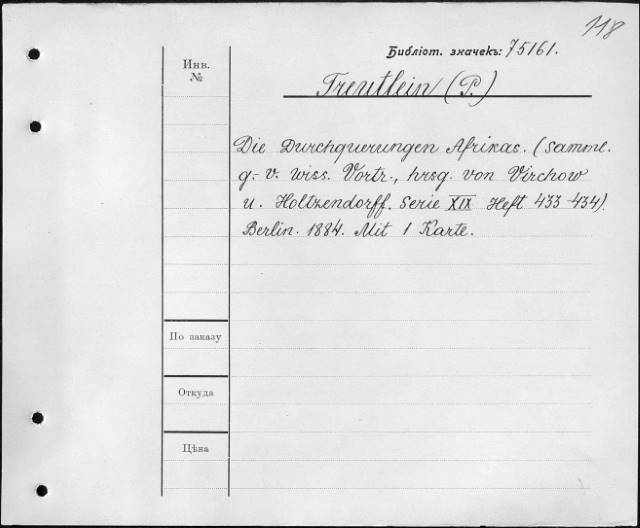 118
Библіот. значекъ: 75161.
Инв.
№
Treutlein (P.)
Die Durchquerungen Afrikas. (Samml.
g.-v. wiss. Vortr., hrsg. von Virchow
u. Holtzendorff. Serie XIX Heft 433-434).
Berlin. 1884. Mit 1 Karte.
По заказу
Откуда
Цѣна